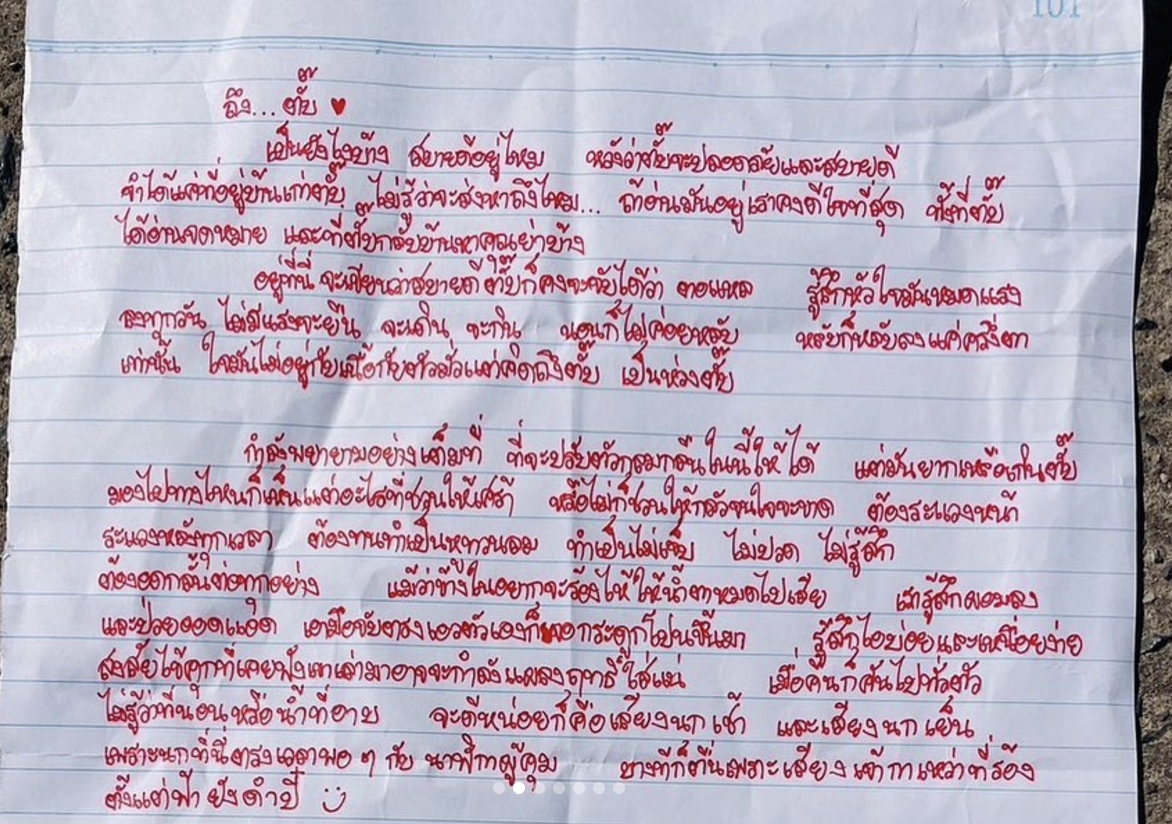 101
ถึง... ตั๊บ ♥
เป็นยังไงบ้าง สบายดีอยู่ไหม หวังว่าตั๊บจะปลอดภัยและสบายดี
จำได้แค่ที่อยู่บ้านเก่าตั๊บ ไม่รู้ว่าจะส่งหาถึงไหม... ถ้าอ่านมันอยู่เราคงดีใจที่สุด ทั้งที่ตั๊บ
ได้อ่านจดหมาย และที่ตั๊บกลับบ้านหาคุณย่าบ้าง
อยู่ที่นี่ จะเขียนว่าสบายดี ตั๊บก็คงจะจับได้ว่า ตอแหล รู้สึกหัวใจมันหมดแรง
ลงทุกวัน ไม่มีแรงจะยืน จะเดิน จะกิน นอนก็ไม่ค่อยหลับ หลับก็หลับลงแค่ครึ่งตา
เท่านั้น ใจมันไม่อยู่กับเนื้อกับตัวมัวแต่คิดถึงตั๊บ เป็นห่วงตั๊บ
กำลังพยายามอย่างเต็มที่ ที่จะปรับตัวกลมกลืนในนี้ให้ได้ แต่มันยากเหลือเกินตั๊บ
มองไปทางไหนก็เห็นแต่อะไรที่ชวนให้เศร้า หรือไม่ก็ชวนให้กลัวจนใจจะขาด ต้องระแวงหน้า
ระแวงหลังทุกเวลา ต้องทนทำเป็นหูทวนลม ทำเป็นไม่เจ็บ ไม่ปวด ไม่รู้สึก
ต้องอดกลั้นต่อทุกอย่าง แม้ว่าข้างในอยากจะร้องไห้ให้น้ำตาหมดไปเสีย เรารู้สึกผอมลง
และป่วยออดแอด เอามือจับตรงเอวตัวเองก็เจอกระดูกโปนขึ้นมา รู้สึกไอบ่อยและเหนื่อยง่าย
สงสัยไข้คุกที่เคยฟังเขาเล่ามาอาจจะกำลังแผลงฤทธิ์ใส่แน่ เมื่อคืนก็คันไปทั่วตัว
ไม่รู้ว่าที่นอนหรือน้ำที่อาบ จะดีหน่อยก็คือเสียงนกเช้า และเสียงนกเย็น
เพราะนกที่นี่ตรงเวลาพอ ๆ กับ นาฬิกาผู้คุม บางทีก็ตื่นเพราะเสียงเจ้ากาเหว่าที่ร้อง
ตั้งแต่ฟ้ายังดำปี๋ :)